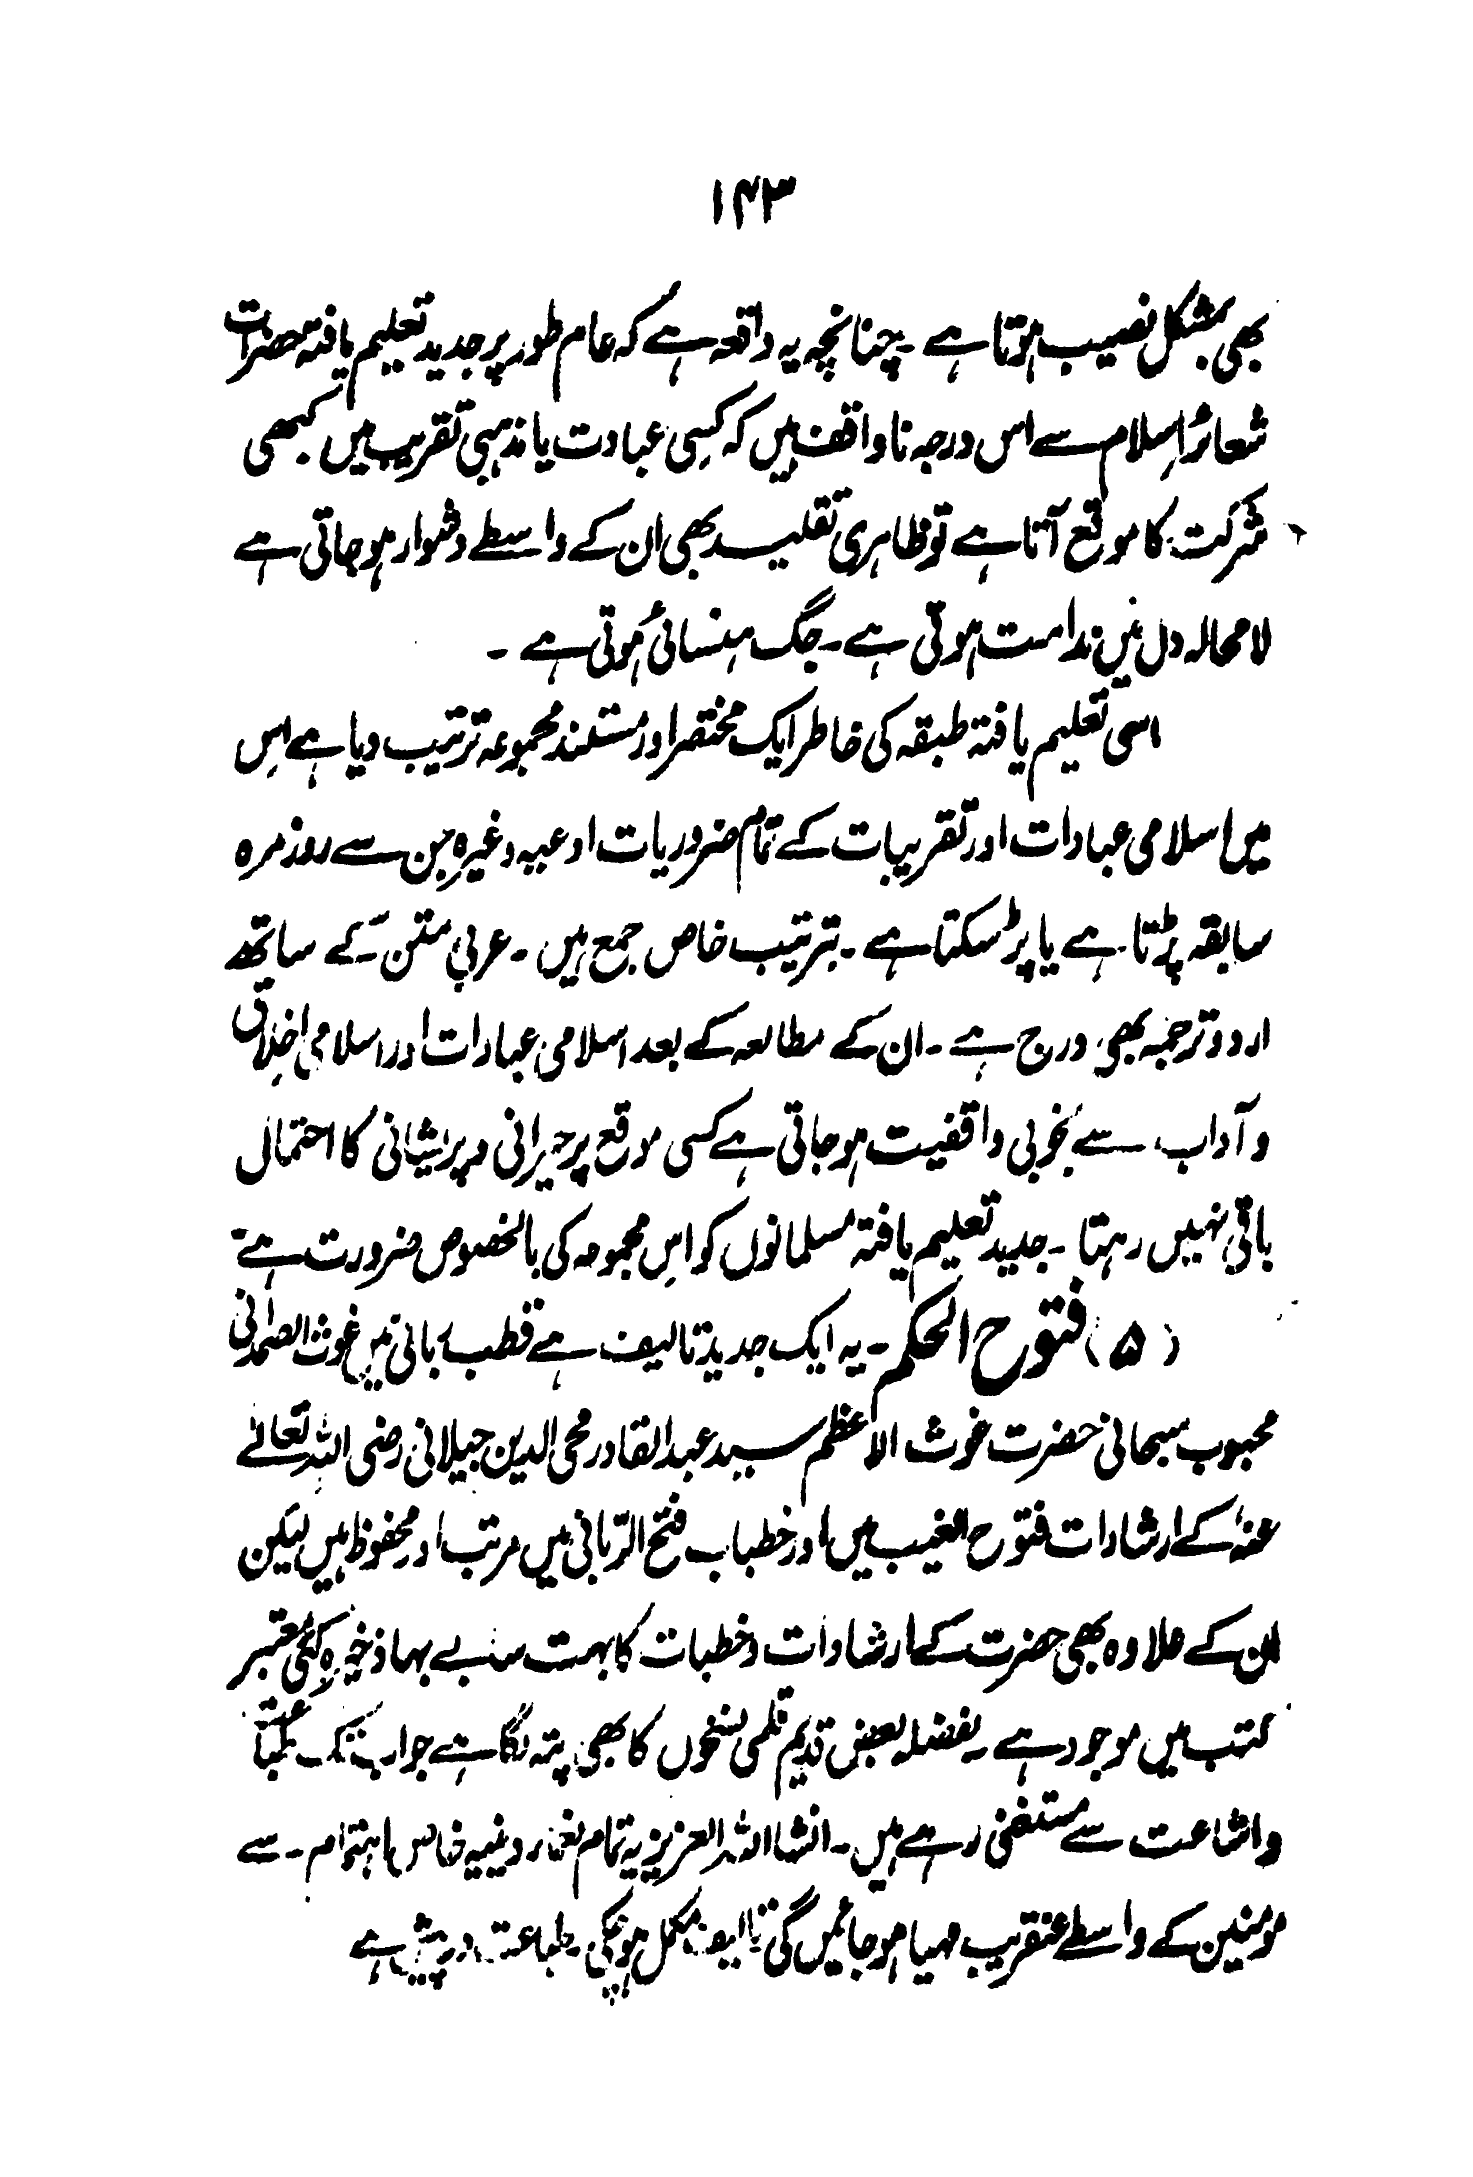 ۱۴۳
بھی بمشکل نصیب ہوتا ہے ۔ چنانچہ یہ واقعہ ہے کہ عام طور پر جدید تعلیم یافتہ حضرات
شعائر اسلام سے اس درجہ ناواقف ہیں کہ کسی عبادت یا مذہبی تقریب میں کبھی
شرکت کا موقع آتا ہے تو ظاہری تقلید بھی ان کے واسطے دشوار ہو جاتی ہے
لا محالہ دل میں ندامت ہوتی ہے ۔ جگ ہنسائی ہوتی ہے ۔
اسی تعلیم یافتہ طبقہ کی خاطر ایک مختصر اور مستند مجموعہ ترتیب دیا ہے اس
میں اسلامی عبادات اور تقریبات کے تمام ضروریات ادعیہ وغیرہ جن سے روز مرہ
سابقہ پڑتا ہے یا پڑ سکتا ہے ۔ بترتیب خاص جمع ہیں ۔ عربی متن کے ساتھ
اردو ترجمہ بھی درج ہے ۔ ان کے مطالعہ کے بعد اسلامی عبادات اور اسلامی اخلاق
و آداب سے بخوبی واقفیت ہو جاتی ہے کسی موقع پر حیرانی و پریشانی کا احتمال
باقی نہیں رہتا ۔ جدید تعلیم یافتہ مسلمانوں کو اس مجموعہ کی بالخصوص ضرورت ہے ۔
(۵) فتوح الحکم ۔ یہ ایک جدید تالیف ہے قطب ربانی غوث الصمدانی
محبوب سبحانی حضرت غوث الاعظم سید عبدالقادر محی الدین جیلانی رضی اللہ تعالےٰ
عنہ کے ارشادات فتوح الغیب میں اور خطبات فتح الربانی میں مرتب اور محفوظ ہیں لیکن
ان کے علاوہ بھی حضرت کے ارشادات و خطبات کا بہت سا بے بہا ذخیرہ کئی معتبر
کتب میں موجود ہے ۔ بفضلہ بعض قدیم قلمی نسخوں کا بھی پتہ لگا ہے جو اب تک طباعت
و اشاعت سے مستغنی رہے ہیں ۔ انشاء اللہ العزیز یہ تمام دینیہ خاص اہتمام ۔ سے
مومنین کے واسطے عنقریب مہیا ہو جائیں گی تالیف مکمل ہو چکی ۔ طباعت درپیش ہے